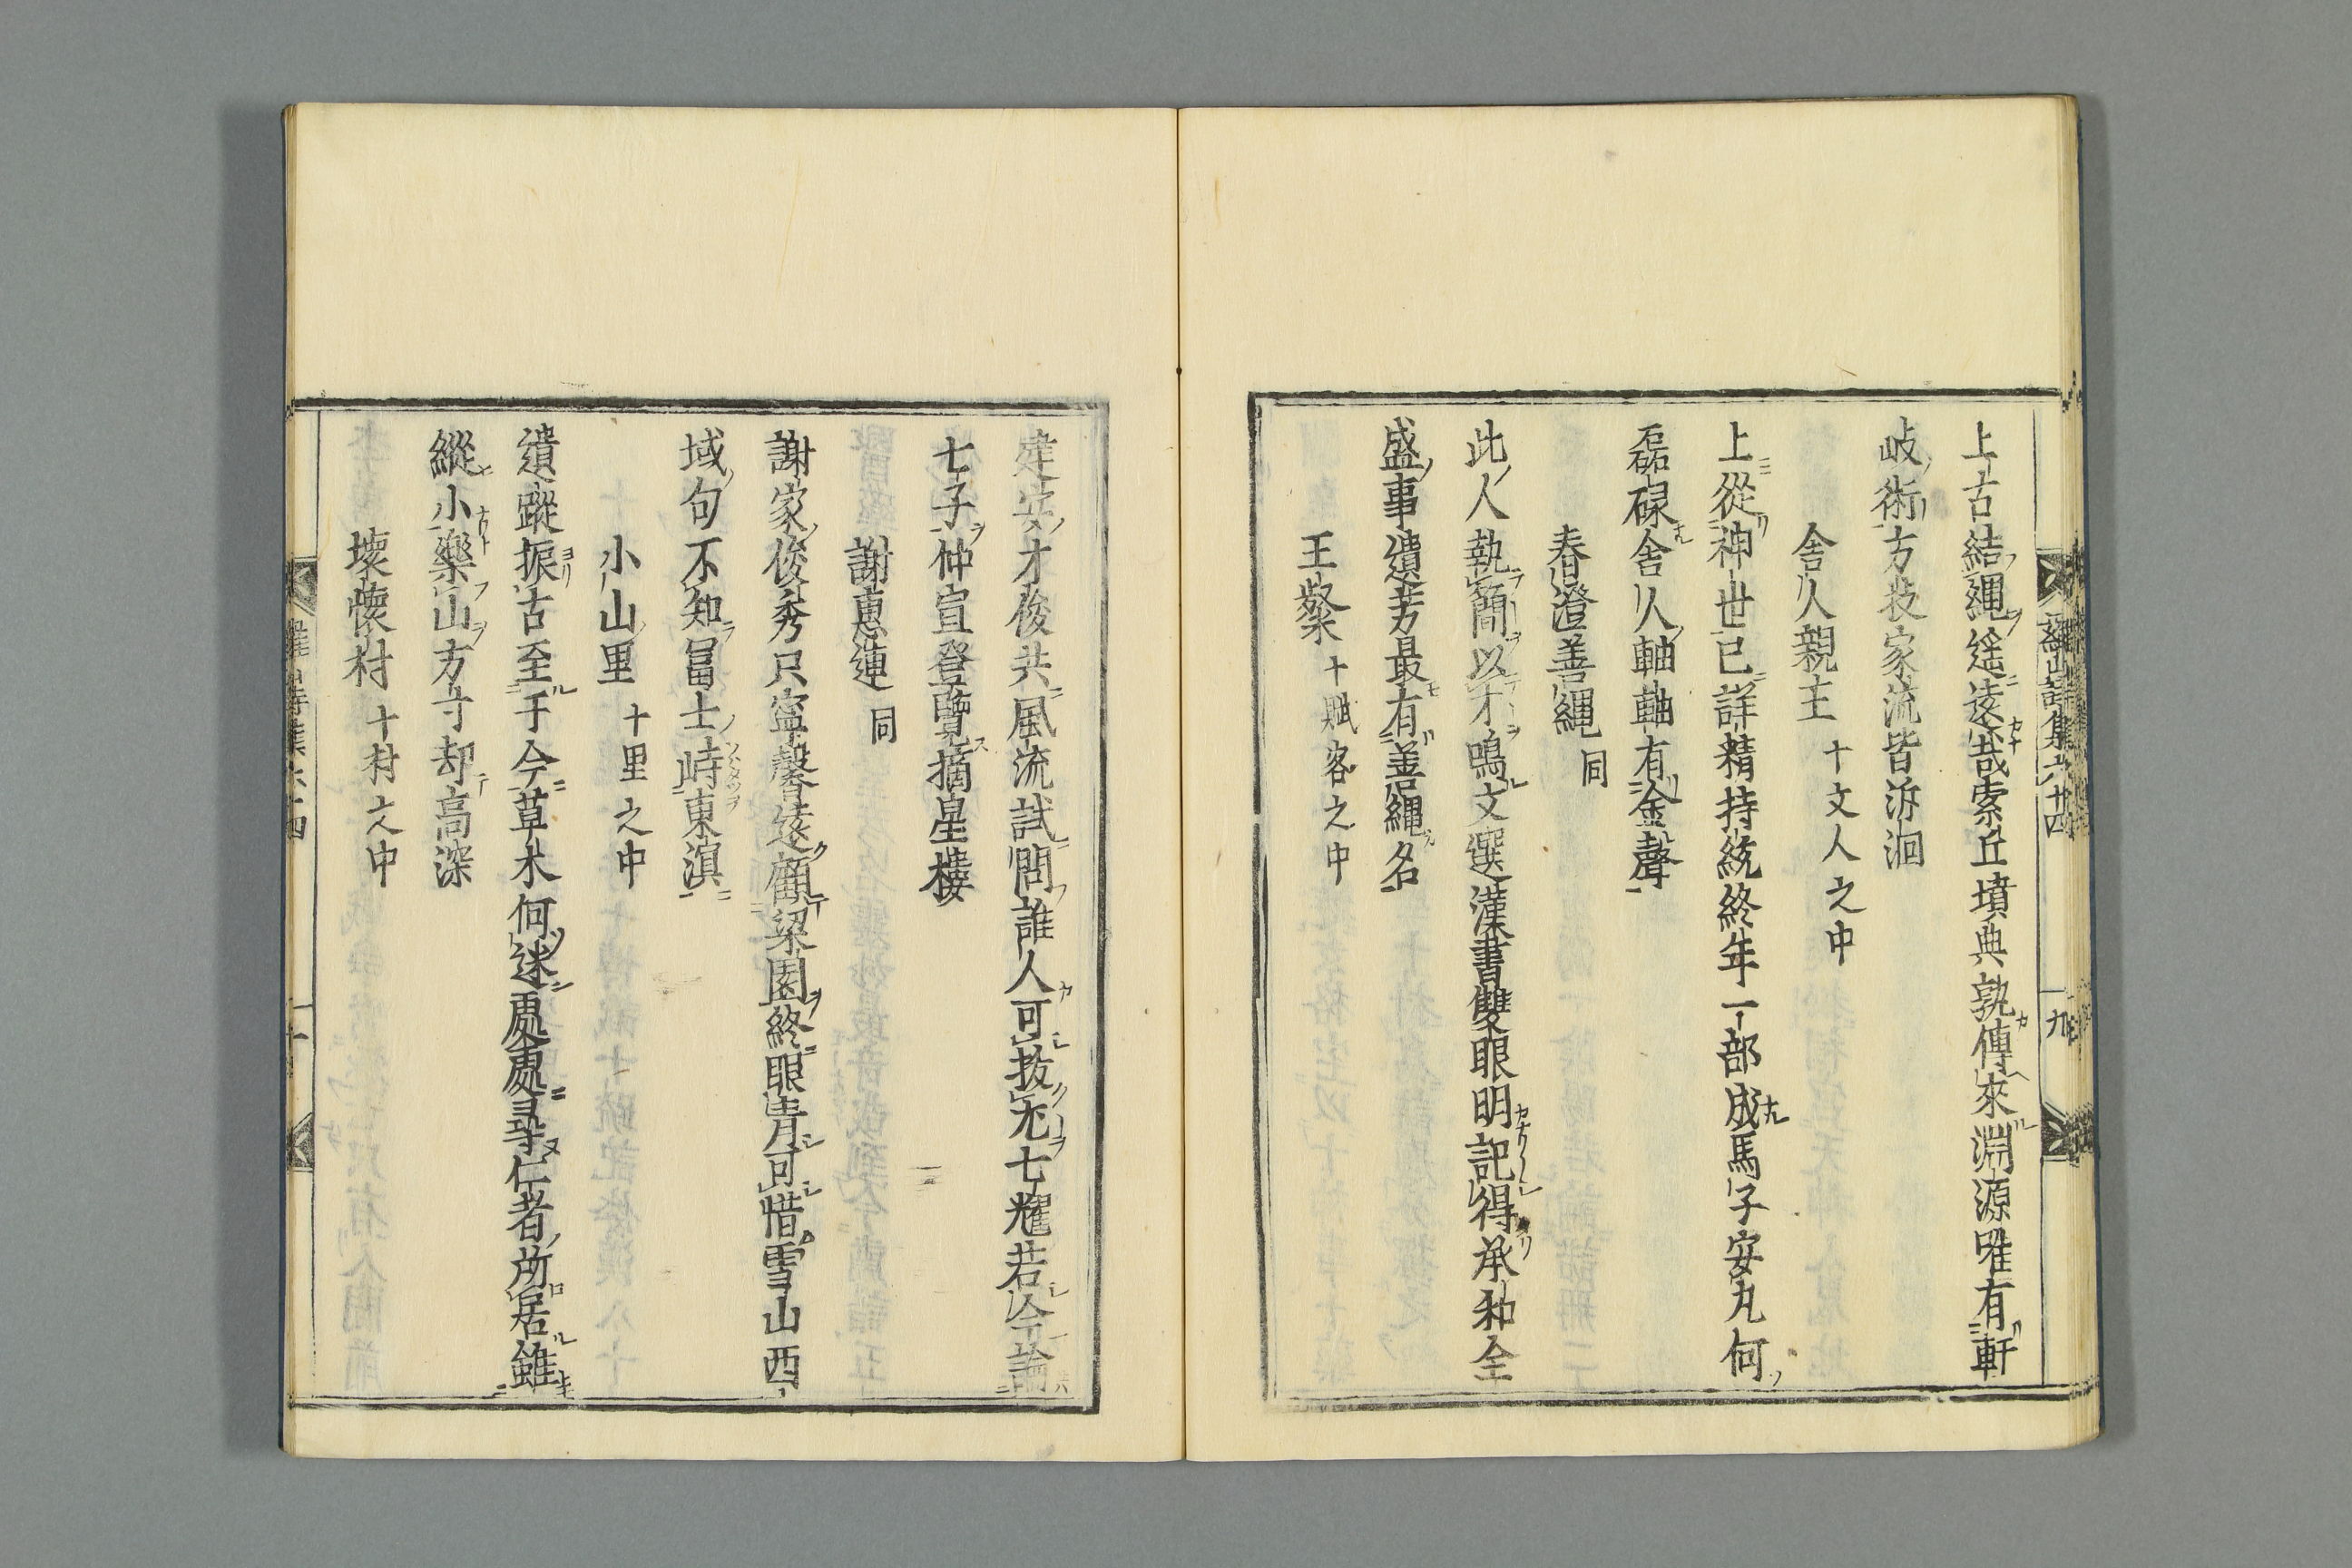 上古結繩遙遠哉索丘墳典孰傳來淵源唯有軒
岐術方技家流皆泝洄
舎人親王 十文人之中
上從神世已詳精持統終年一部成馬子安丸何
磊碌舎人軸軸有金聲
春澄善繩 同
此人執簡以才鳴文選漢書雙眼明記得承和全
盛事遺芳最有善繩名
王粲 十賦客之中
建安才俊共風流試問誰人可拔尤七耀若令論
七子仲宣登覽摘星樓
謝惠連 同
謝家俊秀只寧馨遠顧梁園終眼青可惜雪山西
域句不知冨士峙東溟
小山里 十里之中
遺蹤振古至于今草木何迷處處尋仁者所居雖
縱小樂山方寸却高深
壞懷村 十村之中